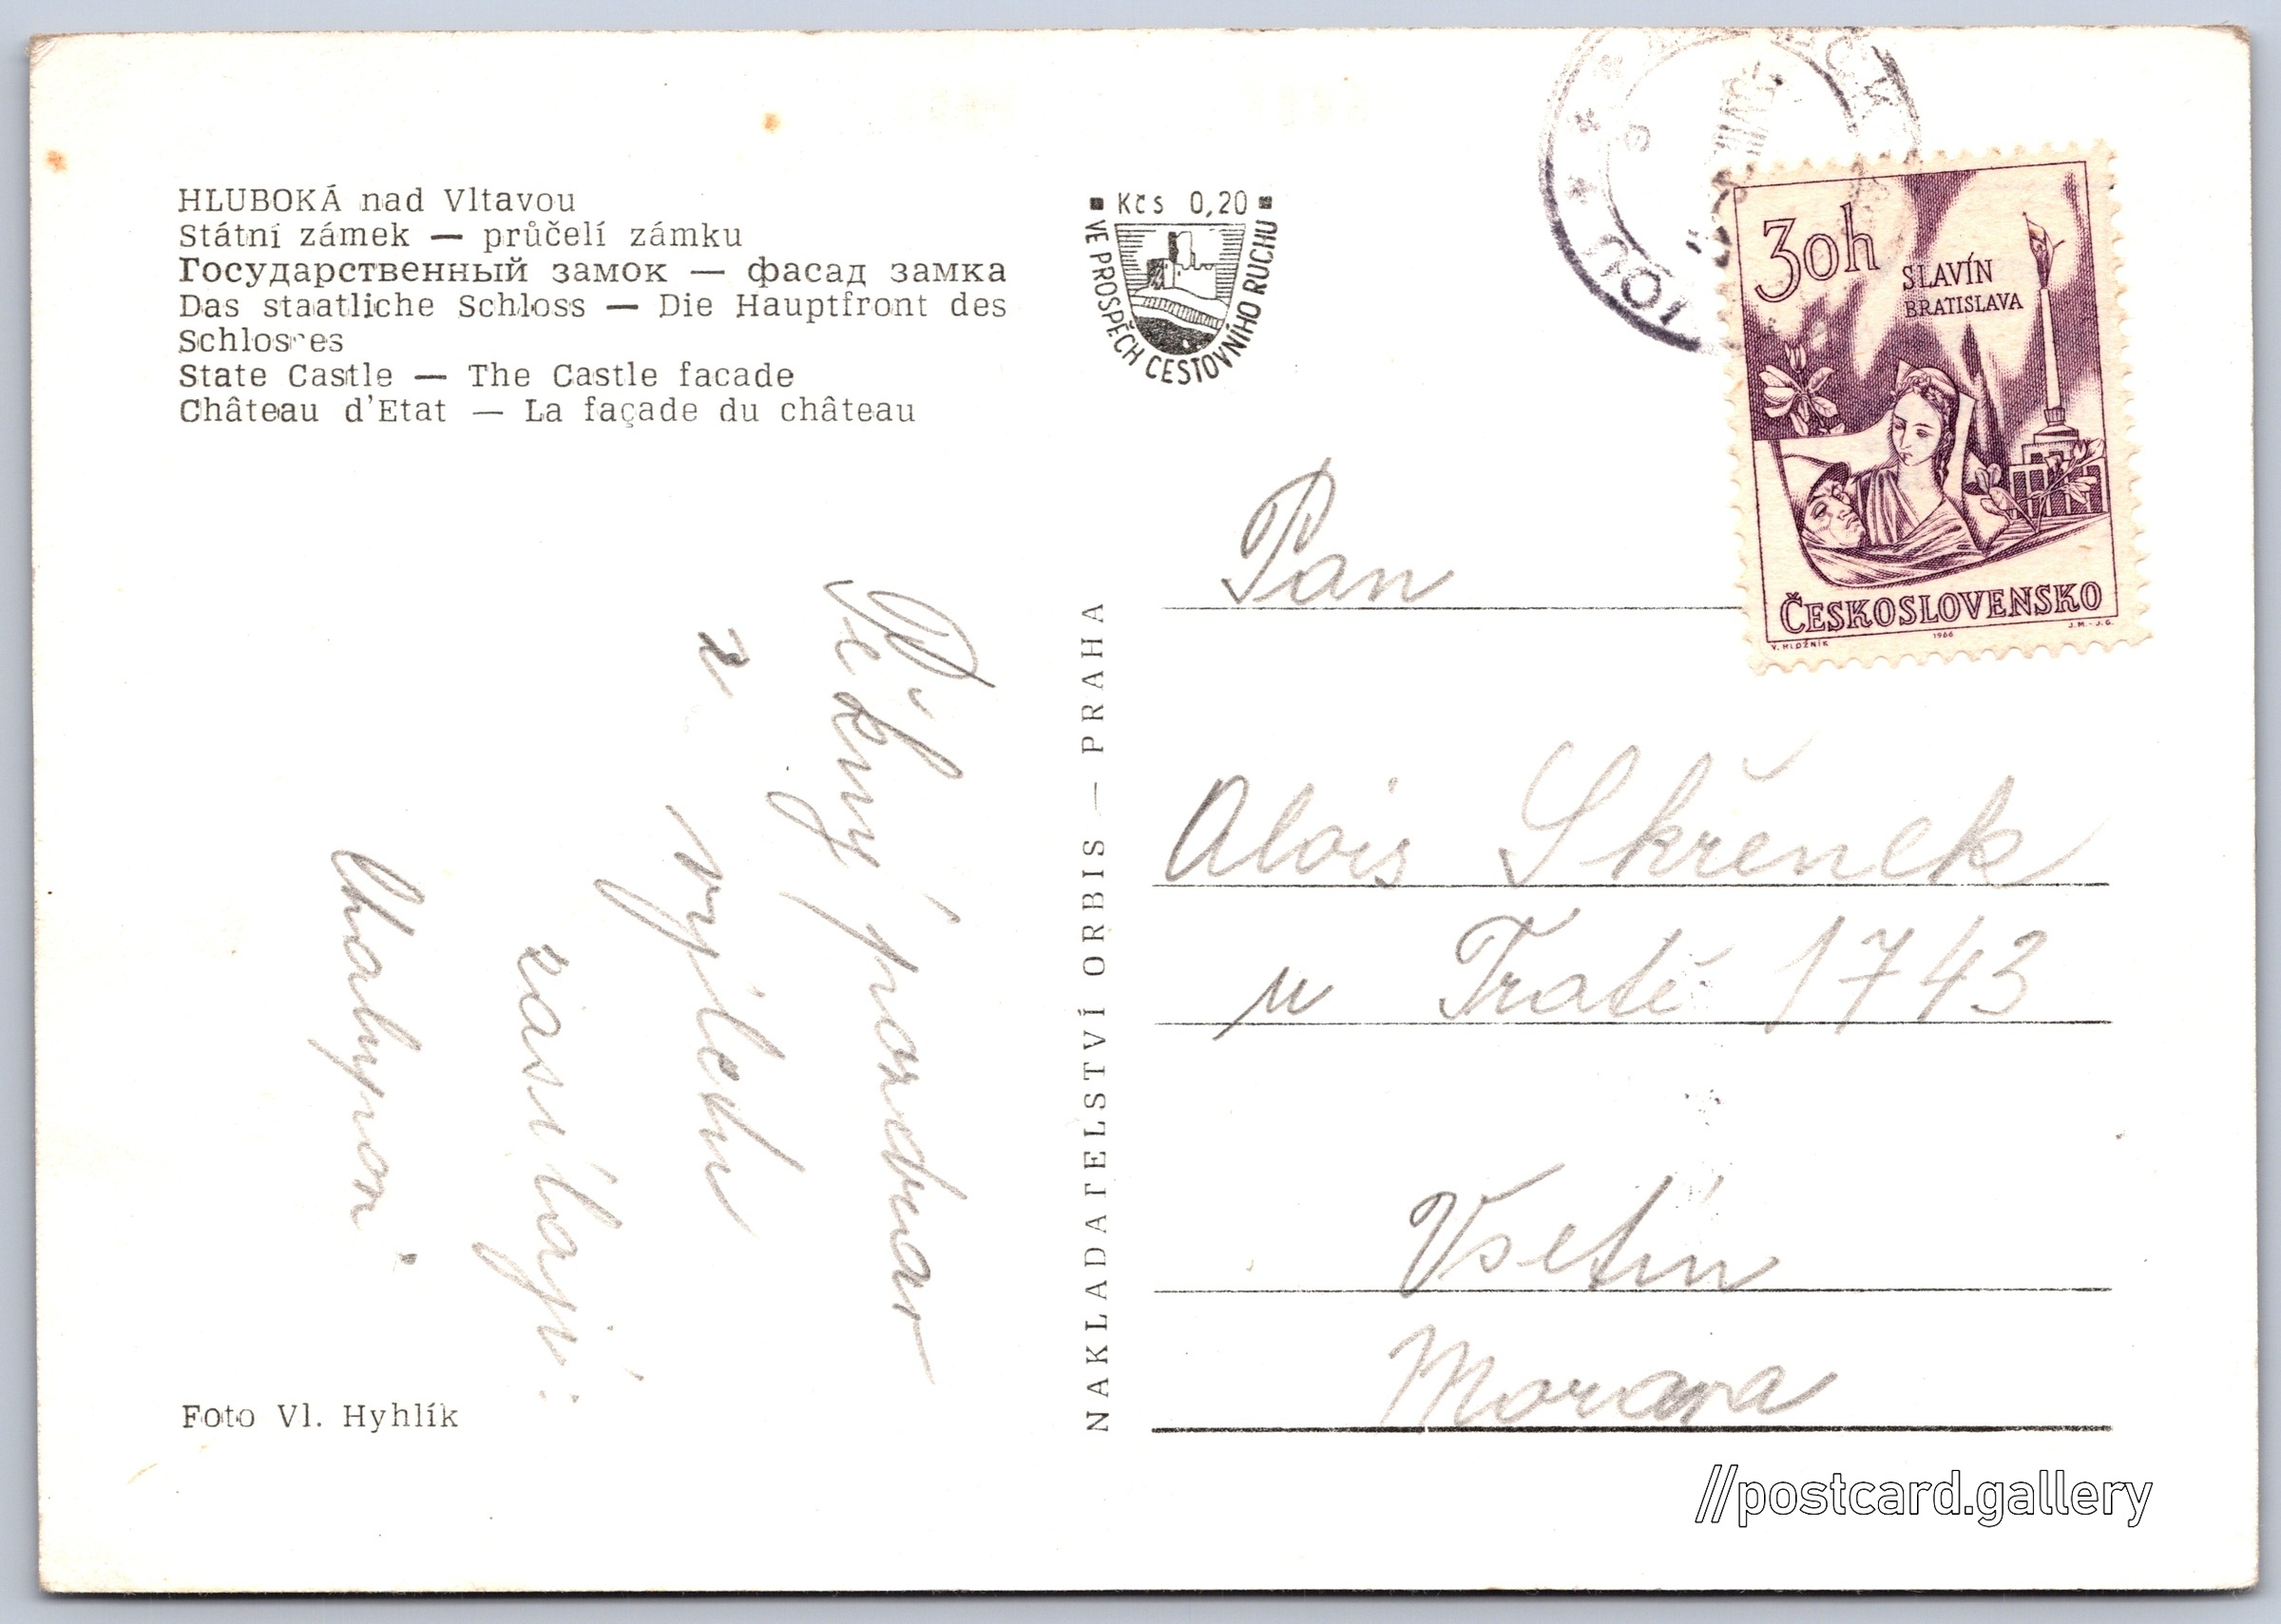 HLUBOKÁ nad Vltavou
Státní zámek — průčelí zámku
Государственный замок — фасад замка
Das staatliche Schloss — Die Hauptfront des
Schlosses
State Castle — The Castle facade
Château d'Etat — La façade du château
Kčs 0,20
VE PROSPĚCH CESTOVNÍHO RUCHU
30h
SLAVÍN
BRATISLAVA
ČESKOSLOVENSKO
V. HLOŽNÍK 1966 J.M.-J.G.
Pěkný pozdrav
z výletu
zasílají:
NAKLADATELSTVÍ ORBIS — PRAHA
Pan
Alois Skřenek
u Tratě 1743
Vsetín
Morava
Foto Vl. Hyhlík
//postcard.gallery